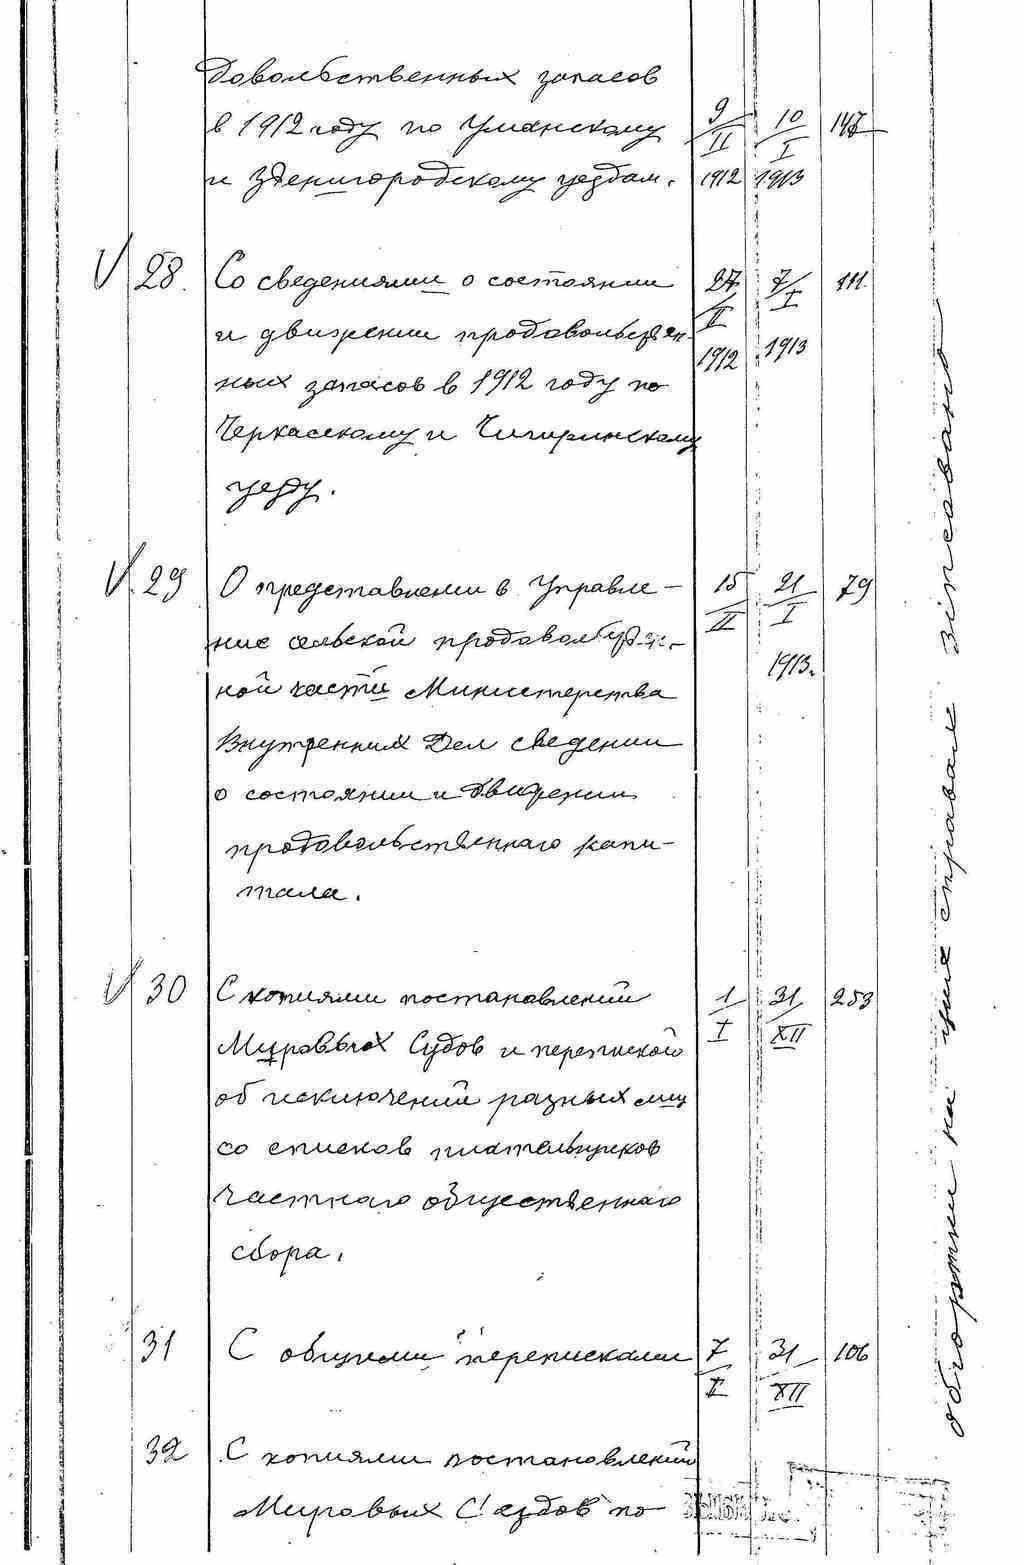 довольственных запасов
в 1912 году по Уманскому 9/II 10/I 147
и Звенигородскому уездам. 1912 1913
V 28. Со сведениями о состоянии 27/II 7/I 111.
и движении продовольствен- 1912 1913
ных запасов в 1912 году по
Черкасскому и Чигиринскому
уезду.
V 29 О представлении в Управле- 15/II 21/I 79
ние сельской продовольствен-
ной части Министерства 1913.
Внутренних Дел сведении
о состоянии и движении
продовольственнаго капи-
тала.
V 30 С копиями постановлений 1/I 31/XII 253
Мировых Судов и перепиской
об исключении разных лиц
со списков плательщиков
частнаго общественнаго
сбора.
31 С общими переписками 7/I 31/XII 106
32 С копиями постановлений
Мировых Съездов по
обгортки на цих справах зіпсовано